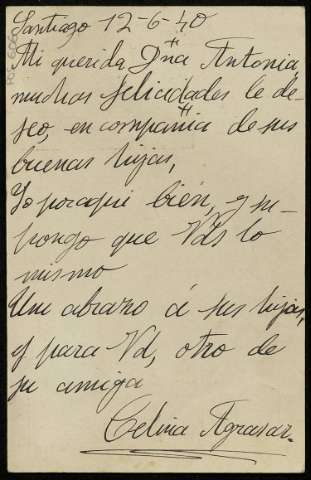 Santiago 12-6-40
Mi querida Dña Antonia,
muchas felicidades le de-
seo, en compañia de sus
buenas hijas,
Yo poraqui bién, y su-
pongo que Vds lo
mismo
Un abrazo á sus hijas,
y para Vd, otro de
su amiga
Celina Agrasar.